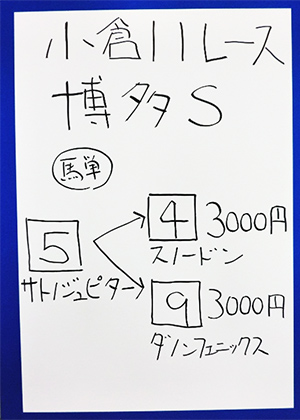 小倉11レース
博多S
馬単
5
サトノジュピター
4 3000円
スノードン
9 3000円
ダノンフェニックス